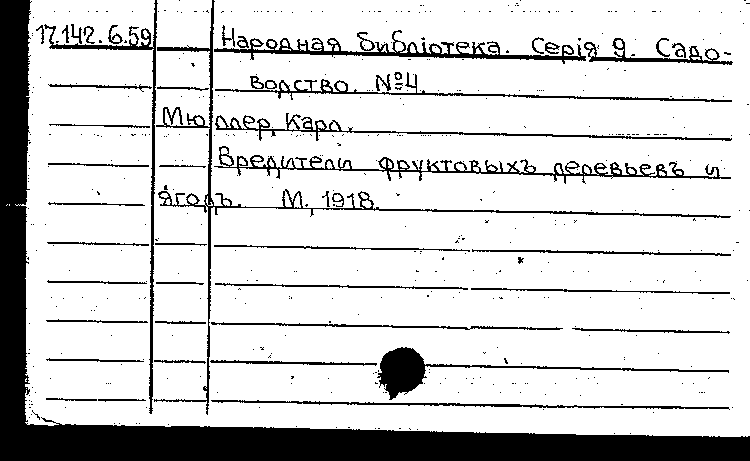 17.142.6.59 Народная библіотека. Серія 9. Садо-
водство. №4.
Мюллер, Карл.
Вредители фруктовыхъ деревьевъ и
ягодъ. М., 1918.